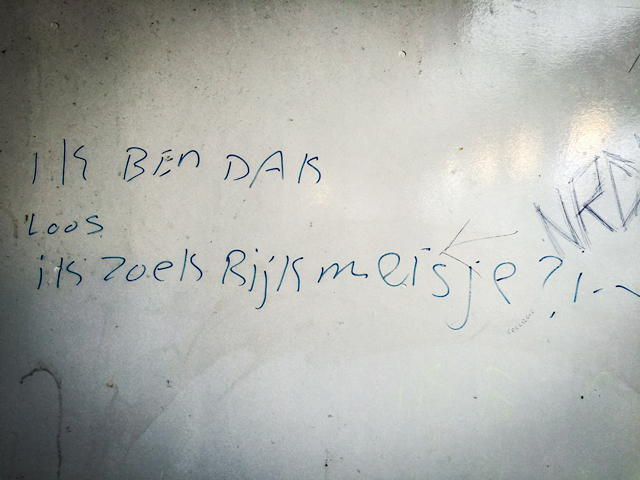 IK BEN DAK
LOOS
ik zoek Rijk meisje?!
NRD